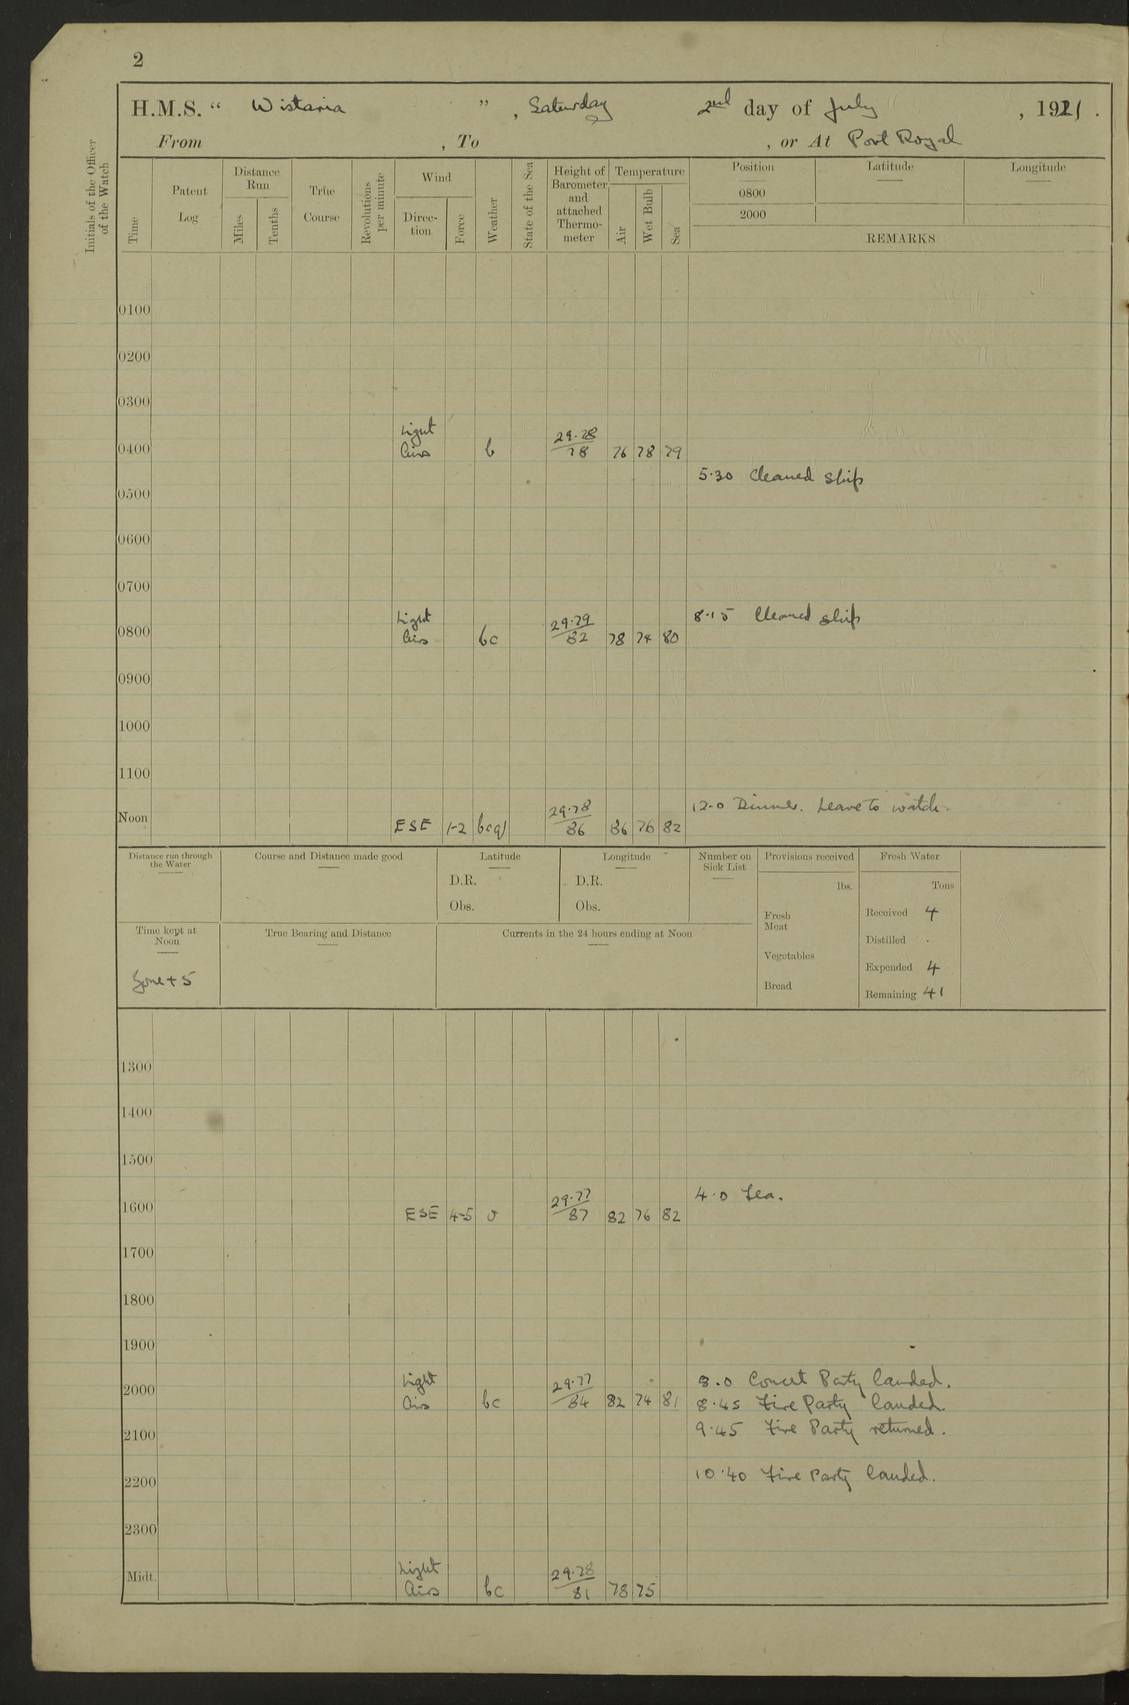 2
H.M.S. “ Wistaria ” , Saturday 2nd day of July , 1921 .
From , To , or At Port Royal
Initials of the Officer of the Watch
Time
Patent Log
Distance Run
Miles
Tenths
True Course
Revolutions per minute
Wind
Direc-tion
Force
Weather
State of the Sea
Height of Barometer and attached Thermo-meter
Temperature
Air
Wet Bulb
Sea
Position Latitude Longitude
0800
2000
REMARKS
0100
0200
0300
0400 Light Airs b 29.78/78 76 78 79
5.30 Cleaned Ship
0500
0600
0700
8.15 Cleaned ship
0800 Light Airs bc 29.79/82 78 74 80
0900
1000
1100
12.0 Dinner. Leave to watch.
Noon ESE 1-2 bcq 29.78/86 86 76 82
Distance run through the Water
Course and Distance made good
Latitude
D.R.
Obs.
Longitude
D.R.
Obs.
Number on Sick List
Provisions received
lbs.
Fresh Meat
Vegetables
Bread
Fresh Water
Tons
Received 4
Distilled .
Expended 4
Remaining 41
Time kept at Noon
Zone + 5
True Bearing and Distance
Currents in the 24 hours ending at Noon
1300
1400
1500
4.0 Tea.
1600 ESE 4-5 o 29.77/87 82 76 82
1700
1800
1900
8.0 Concert Party landed.
2000 Light Airs bc 29.77/84 82 74 81
8.45 Fire Party landed.
9.45 Fire Party returned.
2100
10.40 Fire Party landed.
2200
2300
Midt. Light Airs bc 29.78/81 78 75